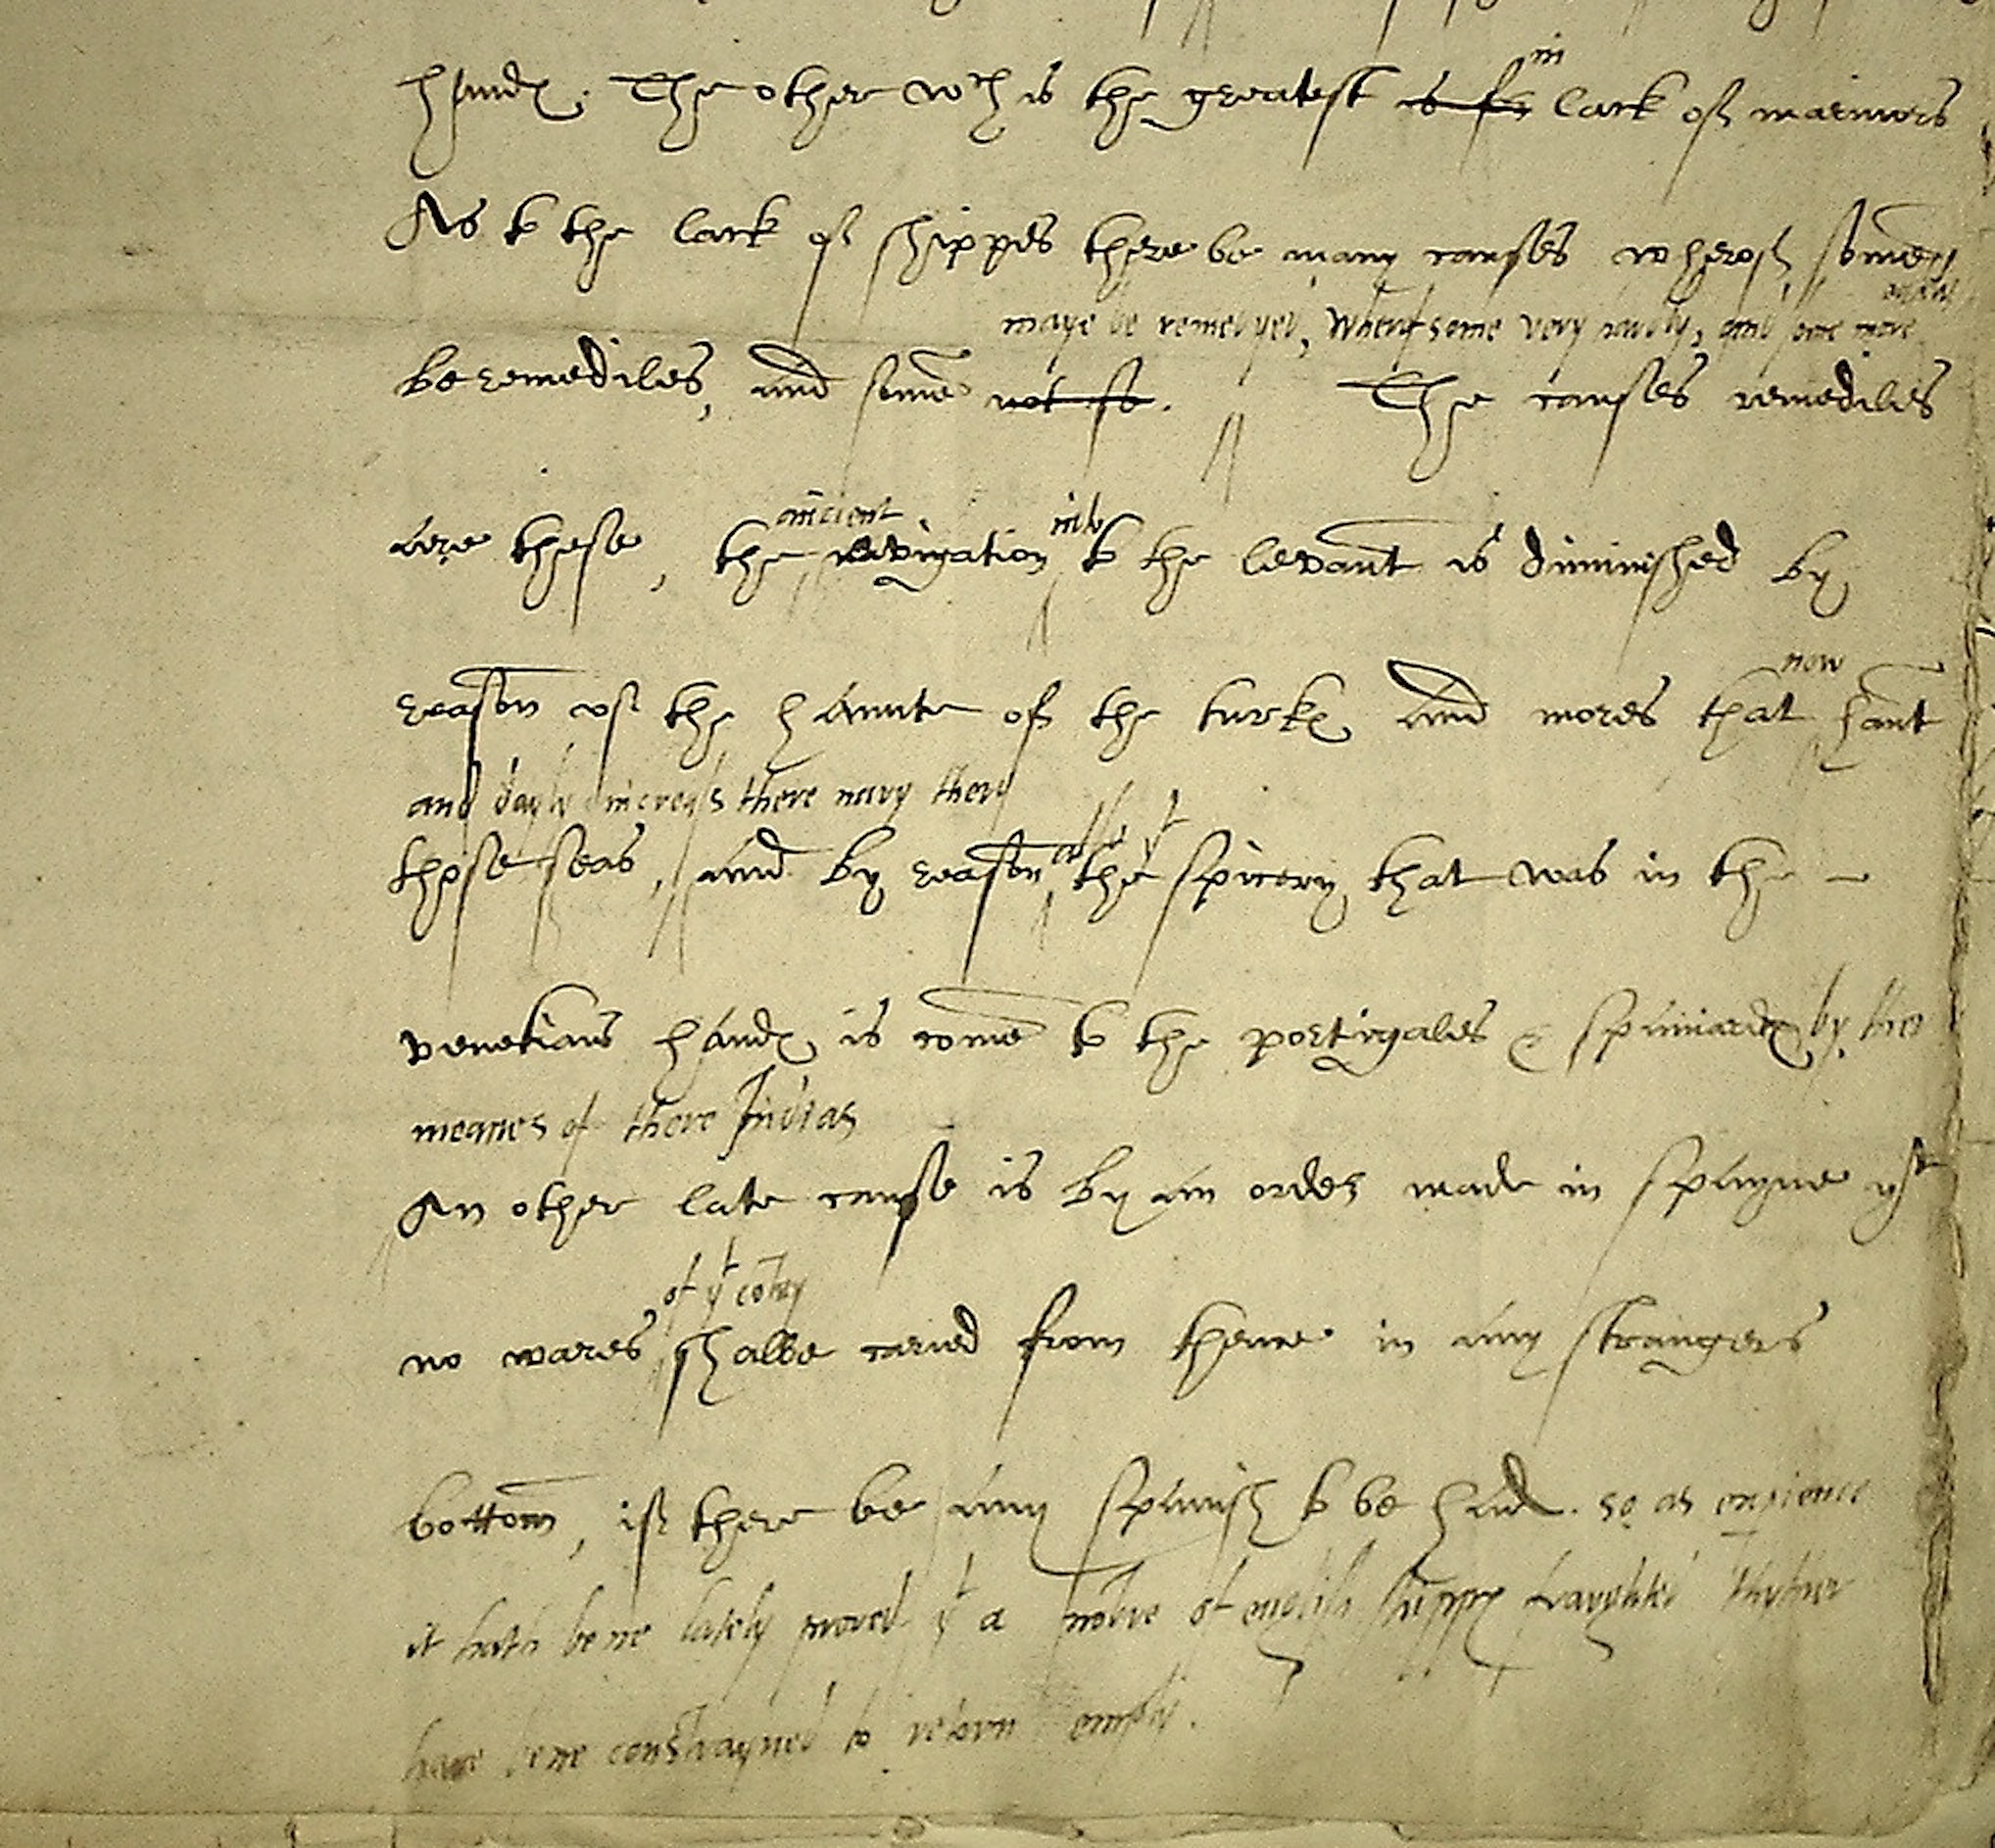 handes. The other wch is the greatest is for in lack of mariners
As to the lack of shippes there be many causes wherof, some
maye be remedyed, wherof some very hardly, and some more
be remediles, and some not so. The causes remediles
are these, the ancient navigation into the levant is diminished by
reason of the haunte of the turkes and mores that now hant
and dayly increass there navy there
those seas, and by reason all yt the spicery that was in the
venetians handes is come to the portingales & spaniardes by the
meanes of there Indias
An other late cause is by an order made in Spayne yt
of yt contry
no wares shalbe caried from thence in any strangers
bottom, if there be any Spanish to be had. so as
it hath bene lately proved yt a nombre of english shippes fraughted thyther
have bene constrayned to retorn empty.